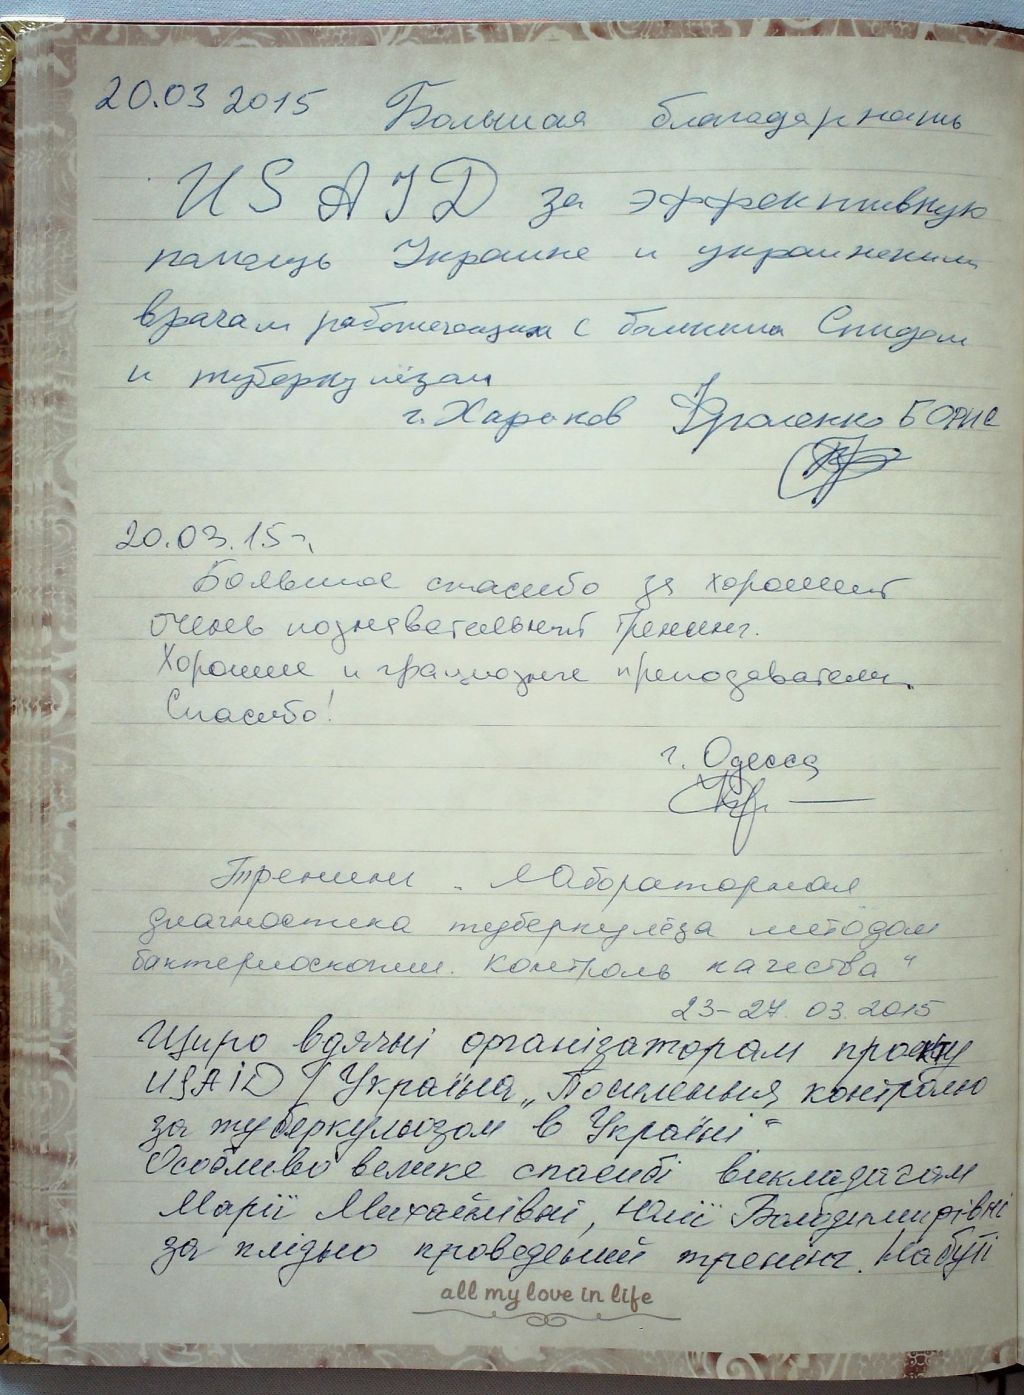 20.03 2015 Большая благодарность
USAID за эффективную
помощь Украине и украинским
врачам работающим с больными Спидом
и туберкулёзом
г. Харьков Борис
20.03.15 г.
Большое спасибо за хороший
очень познавательный тренинг.
Хорошие и грациозные преподаватели.
Спасибо!
г. Одесса
Тренинг „Лабораторная
диагностика туберкулёза методом
бактериоскопии. Контроль качества“
23-27. 03. 2015
Щиро вдячні організаторам проекту
USAID / Україна „Посилення контролю
за туберкульозом в Україні“
Особливо велике спасибі викладачам
Марії Михайлівні, Юлії Володимирівні
за плідно проведений тренінг. Набуті
all my love in life